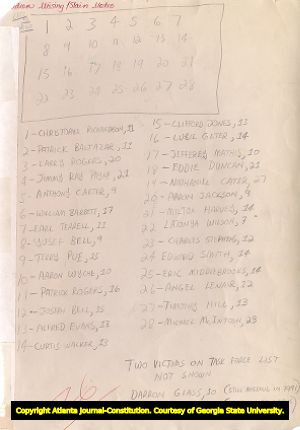 Missing/Slain
1 2 3 4 5 6 7
8 9 10 11 12 13 14
15 16 17 18 19 20 21
22 23 24 25 26 27 28
1-CHRISTOPHER RICHARDSON, 11
2-PATRICK BALTAZAR, 11
3-LARRY ROGERS, 20
4-JIMMY RAY PAYNE, 21
5-ANTHONY CARTER, 9
6-WILLIAM BARRETT, 17
7-EARL TERRELL, 11
8-YUSEF BELL, 9
9-TERRY PUE, 15
10-AARON WYCHE, 10
11-PATRICK ROGERS, 16
12-JOSEPH BELL, 15
13-ALFRED EVANS, 13
14-CURTIS WALKER, 13
15-CLIFFORD JONES, 13
16-LUBIE GETER, 14
17-JEFFEREY MATHIS, 10
18-EDDIE DUNCAN, 21
19-NATHANIEL CATER, 27
20-AARON JACKSON, 9
21-MILTON HARVEY, 14
22 LATONYA WILSON, 7
23-CHARLES STEPHENS, 12
24 EDWARD SMITH, 14
25-ERIC MIDDLEBROOKS, 14
26-ANGEL LENAIR, 12
27-TIMOTHY HILL, 13
28-MICHAEL McINTOSH, 23
TWO VICTIMS ON TASK FORCE LIST
NOT SHOWN
DARRON GLASS, 10 (STILL MISSING IN 1991)
Copyright Atlanta Journal-Constitution. Courtesy of Georgia State University.